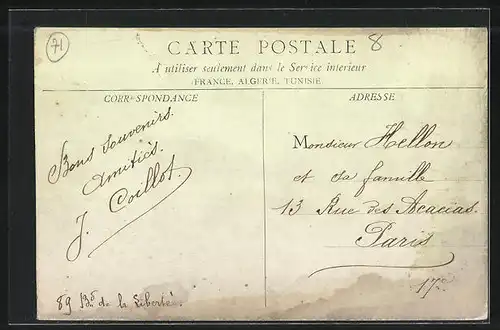 71
CARTE POSTALE
8
A utiliser seulement dans le Service intérieur
(FRANCE, ALGERIE, TUNISIE)
CORRESPONDANCE
Bons souvenirs.
Amitiés.
J. Coillot.
89 Bd de la Liberté.
ADRESSE
Monsieur Hellon
et sa famille
13 Rue des Acacias.
Paris
17e